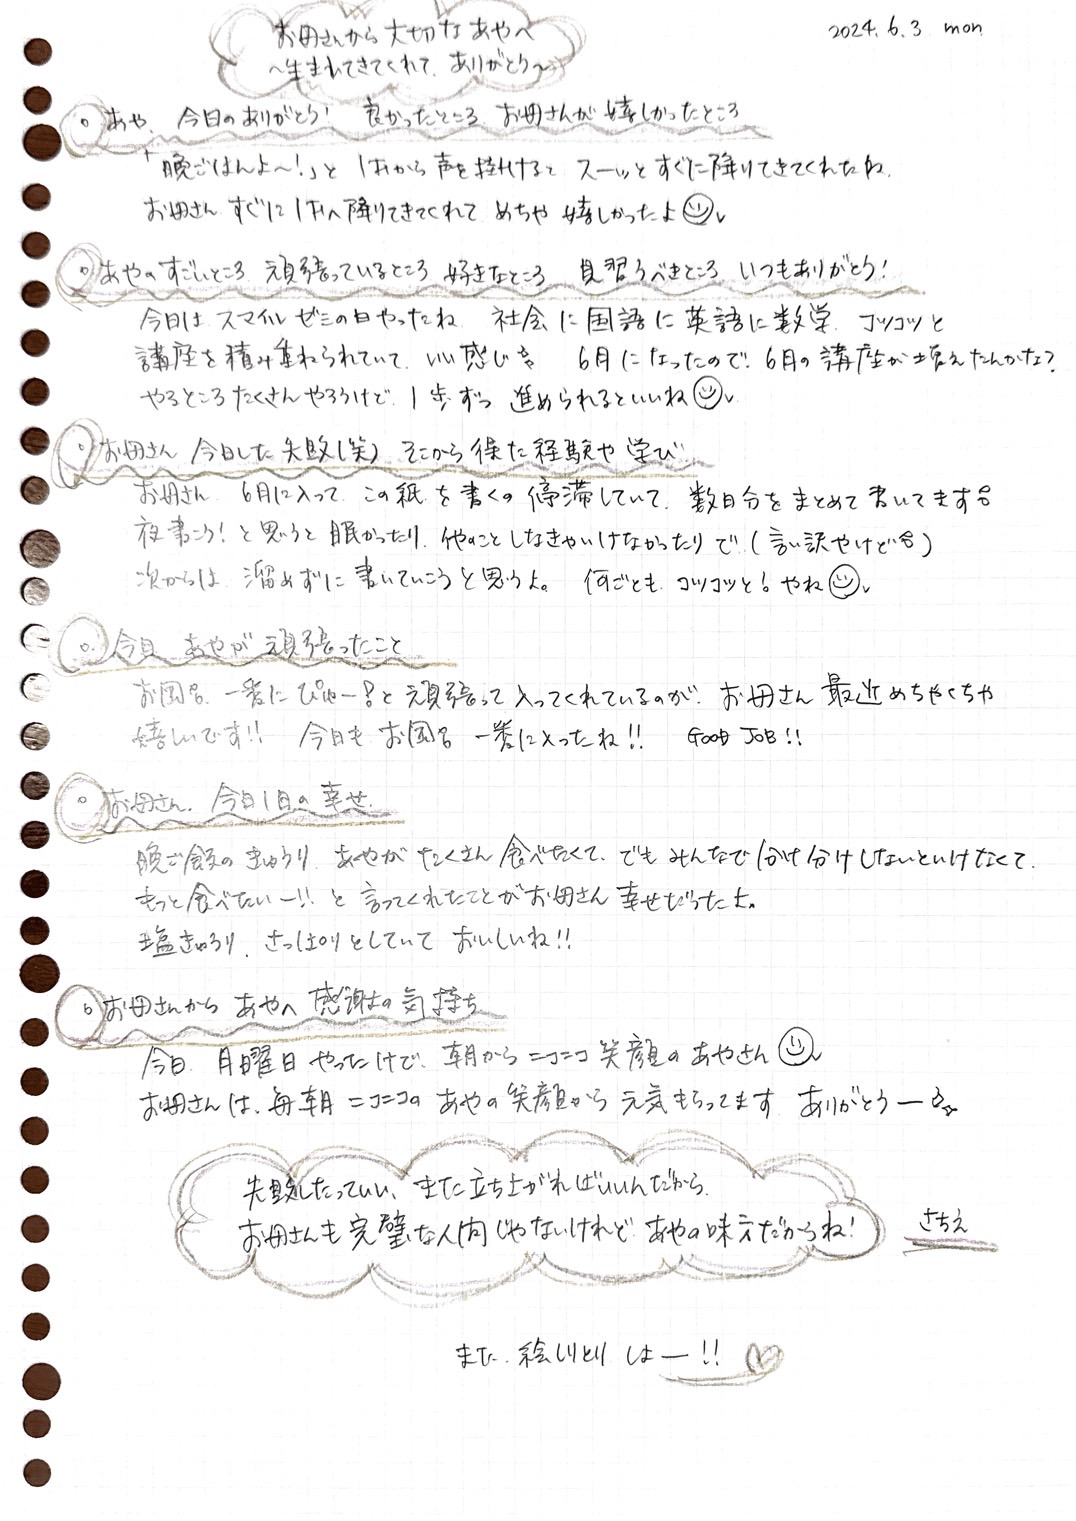 2024. 6. 3 mon
お母さんから大切なあやへ
〜生まれてきてくれて、ありがとう〜
あや、今日のありがとう! 良かったところ お母さんが嬉しかったところ
「晩ごはんよ〜!」と 1Fから声を掛けると スーッとすぐに降りてきてくれたね。
お母さん すぐに1Fへ降りてきてくれて めちゃ嬉しかったよ
あやのすごいところ 頑張っているところ 好きなところ 見習うべきところ いつもありがとう!
今日は スマイルゼミの日やったね 社会に国語に英語に数学 コツコツと
講座を積み重ねられていて、いい感じ 6月になったので、6月の講座が増えたんかな?
やるところたくさんやろうけど、1歩ずつ 進められるといいね
お母さん 今日した失敗(笑) そこから得た経験や学び
お母さん、6月に入って、この紙を書くの停滞していて、数日分をまとめて書いてます
夜書こう!と思うと眠かったり、他のことしなきゃいけなかったりで(言い訳やけど)
次からは、溜めずに書いていこうと思うよ。 何ごとも コツコツと!やね
今日 あやが頑張ったこと
お風呂、一番にぴゅー!と頑張って入ってくれているのが、お母さん 最近めちゃくちゃ
嬉しいです!! 今日も お風呂 一番に入ったね!! GOOD JOB!!
お母さん、今日1日の幸せ
晩ご飯のきゅうり、あやがたくさん食べたくて、でもみんなで分け分けしないといけなくて、
もっと食べたいー!! と言ってくれたことがお母さん幸せだったよ。
塩きゅうり、さっぱりとしていて おいしいね!!
お母さんから あやへ 感謝の気持ち
今日、月曜日やったけど、朝から ニコニコ笑顔の あやさん
お母さんは、毎朝ニコニコの あやの笑顔から 元気もらってます ありがとうー
失敗したっていい、また立ち上がればいいんだから
お母さんも完璧な人間じゃないけれど あやの味方だからね!
さちえ
また、絵しりとり しよー!!